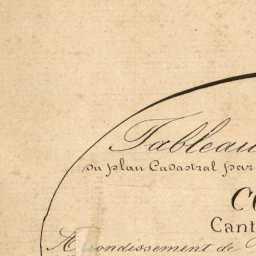 Tableau
du plan Cadastral par
C
Cant
Arrondissement de